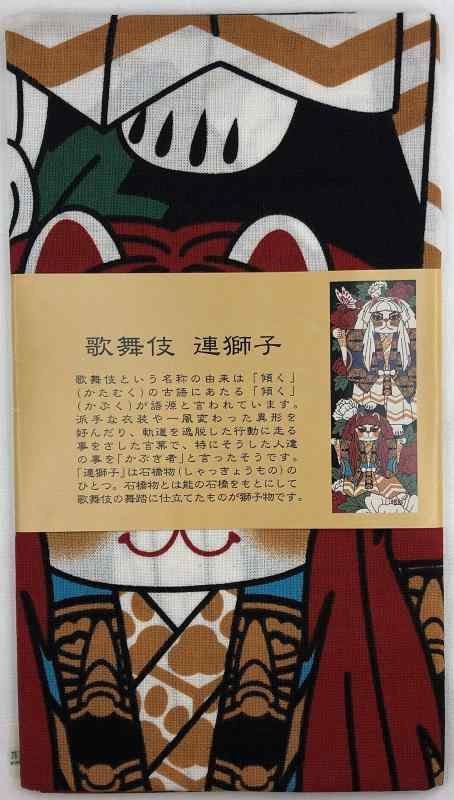 歌舞伎 連獅子
歌舞伎という名称の由来は「傾く」
(かたむく)の古語にあたる「傾く」
(かぶく)が語源と言われています。
派手な衣装や一風変わった異形を
好んだり、軌道を逸脱した行動に走る
事をさした言葉で、特にそうした人達
の事を「かぶき者」と言ったそうです。
「連獅子」は石橋物(しゃっきょうもの)の
ひとつ。石橋物とは能の石橋をもとにして
歌舞伎の舞踏に仕立てたものが獅子物です。